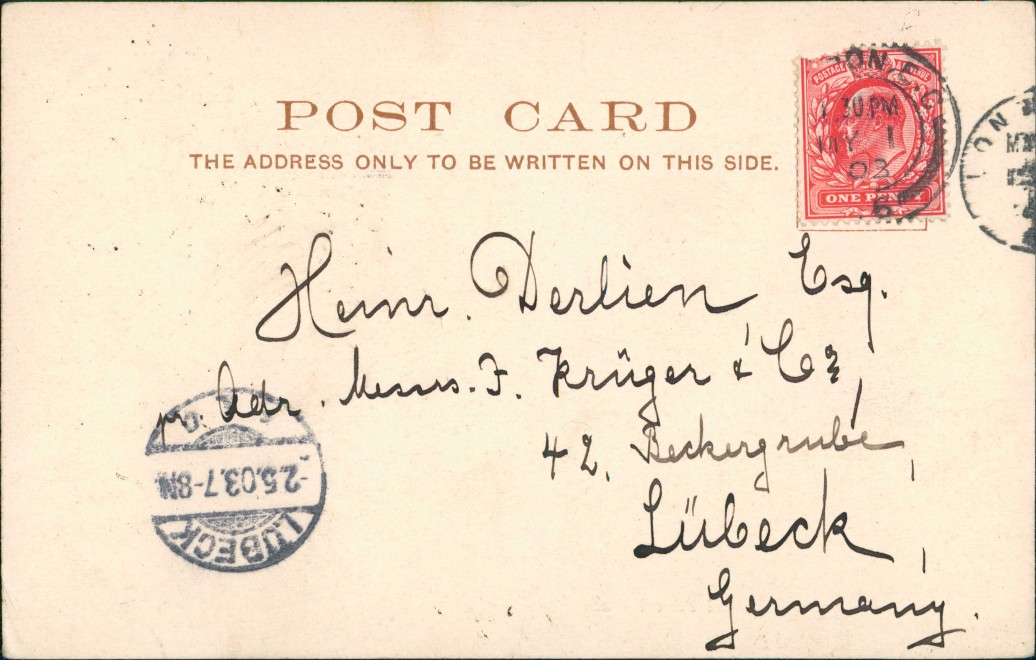 POST CARD
THE ADDRESS ONLY TO BE WRITTEN ON THIS SIDE.
POSTAGE REVENUE
ONE PENNY
LONDON. E.C.
30 PM
MY 1
03
6
LON
Heinr. Derlien Esq.
pr. Adr. Messrs. F. Krüger & Co,
42, Beckergrube,
Lübeck,
Germany.
LÜBECK
-2.5.03.7-8N.